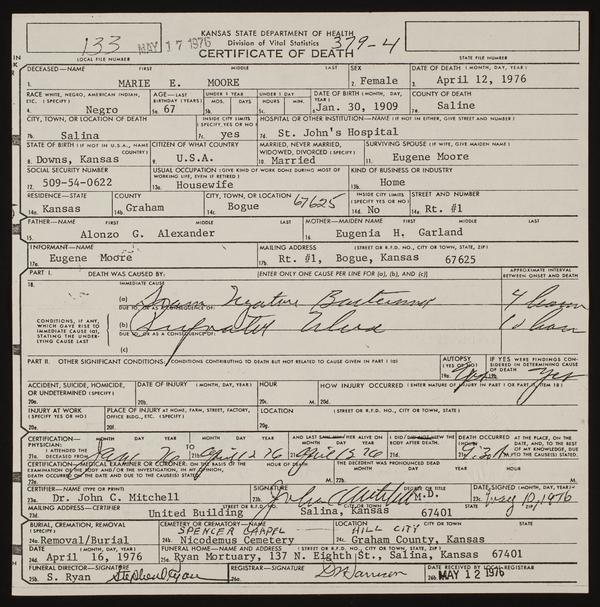 KANSAS STATE DEPARTMENT OF HEALTH
133 MAY 17 1976 Division of Vital Statistics 379-4
LOCAL FILE NUMBER CERTIFICATE OF DEATH STATE FILE NUMBER
DECEASED—NAME FIRST MIDDLE LAST SEX DATE OF DEATH (MONTH, DAY, YEAR)
1. MARIE E. MOORE 2. Female 3. April 12, 1976
RACE WHITE, NEGRO, AMERICAN INDIAN, ETC. (SPECIFY) AGE—LAST BIRTHDAY (YEARS) UNDER 1 YEAR MOS. DAYS UNDER 1 DAY HOURS MIN. DATE OF BIRTH (MONTH, DAY, YEAR) COUNTY OF DEATH
4. Negro 5a. 67 5b. 5c. 6. Jan. 30, 1909 7a. Saline
CITY, TOWN, OR LOCATION OF DEATH INSIDE CITY LIMITS (SPECIFY YES OR NO) HOSPITAL OR OTHER INSTITUTION—NAME (IF NOT IN EITHER, GIVE STREET AND NUMBER)
7b. Salina 7c. yes 7d. St. John's Hospital
STATE OF BIRTH (IF NOT IN U.S.A., NAME COUNTRY) CITIZEN OF WHAT COUNTRY MARRIED, NEVER MARRIED, WIDOWED, DIVORCED (SPECIFY) SURVIVING SPOUSE (IF WIFE, GIVE MAIDEN NAME)
8. Downs, Kansas 9. U.S.A. 10. Married 11. Eugene Moore
SOCIAL SECURITY NUMBER USUAL OCCUPATION (GIVE KIND OF WORK DONE DURING MOST OF WORKING LIFE, EVEN IF RETIRED) KIND OF BUSINESS OR INDUSTRY
12. 509-54-0622 13a. Housewife 13b. Home
RESIDENCE—STATE COUNTY CITY, TOWN, OR LOCATION 67625 INSIDE CITY LIMITS (SPECIFY YES OR NO) STREET AND NUMBER
14a. Kansas 14b. Graham 14c. Bogue 14d. No 14e. Rt. #1
FATHER—NAME FIRST MIDDLE LAST MOTHER—MAIDEN NAME FIRST MIDDLE LAST
15. Alonzo G. Alexander 16. Eugenia H. Garland
INFORMANT—NAME MAILING ADDRESS (STREET OR R.F.D. NO., CITY OR TOWN, STATE, ZIP)
17a. Eugene Moore 17b. Rt. #1, Bogue, Kansas 67625
PART I. DEATH WAS CAUSED BY: [ENTER ONLY ONE CAUSE PER LINE FOR (a), (b), AND (c)] APPROXIMATE INTERVAL BETWEEN ONSET AND DEATH
18. IMMEDIATE CAUSE
(a) Gram Negative
DUE TO, OR AS A CONSEQUENCE OF:
CONDITIONS, IF ANY, WHICH GAVE RISE TO IMMEDIATE CAUSE (a), STATING THE UNDERLYING CAUSE LAST
(b)
DUE TO, OR AS A CONSEQUENCE OF:
(c)
PART II. OTHER SIGNIFICANT CONDITIONS: CONDITIONS CONTRIBUTING TO DEATH BUT NOT RELATED TO CAUSE GIVEN IN PART I (a) AUTOPSY (YES OR NO) IF YES WERE FINDINGS CONSIDERED IN DETERMINING CAUSE OF DEATH
19a. Yes 19b. Yes
ACCIDENT, SUICIDE, HOMICIDE, OR UNDETERMINED (SPECIFY) DATE OF INJURY (MONTH, DAY, YEAR) HOUR HOW INJURY OCCURRED (ENTER NATURE OF INJURY IN PART I OR PART II, ITEM 18)
20a. 20b. 20c. M. 20d.
INJURY AT WORK (SPECIFY YES OR NO) PLACE OF INJURY AT HOME, FARM, STREET, FACTORY, OFFICE BLDG., ETC. (SPECIFY) LOCATION (STREET OR R.F.D. NO., CITY OR TOWN, STATE)
20e. 20f. 20g.
CERTIFICATION—PHYSICIAN: MONTH DAY YEAR MONTH DAY YEAR AND LAST SAW HIM/HER ALIVE ON MONTH DAY YEAR I DID/DID NOT VIEW THE BODY AFTER DEATH. DEATH OCCURRED AT THE PLACE, ON THE DATE, AND, TO THE BEST OF MY KNOWLEDGE, DUE TO THE CAUSE(S) STATED.
21a. I ATTENDED THE DECEASED FROM 76 21b. April 12 76 21c. 21d. 21e. M.
CERTIFICATION—MEDICAL EXAMINER OR CORONER: ON THE BASIS OF THE EXAMINATION OF THE BODY AND/OR THE INVESTIGATION, IN MY OPINION, DEATH OCCURRED ON THE DATE AND DUE TO THE CAUSE(S) STATED. HOUR OF DEATH THE DECEDENT WAS PRONOUNCED DEAD MONTH DAY YEAR HOUR
22a. M. 22b. M.
CERTIFIER—NAME (TYPE OR PRINT) SIGNATURE DATE SIGNED (MONTH, DAY, YEAR)
23a. Dr. John C. Mitchell 23b. John C Mitchell M.D. 23c. May 10, 1976
MAILING ADDRESS—CERTIFIER STREET OR R.F.D. NO. CITY OR TOWN STATE ZIP
23d. United Building Salina, Kansas 67401
BURIAL, CREMATION, REMOVAL (SPECIFY) CEMETERY OR CREMATORY—NAME SPENCER CHAPEL LOCATION CITY OR TOWN STATE HILL CITY
24a. Removal/Burial 24b. Nicodemus Cemetery 24c. Graham County, Kansas
DATE (MONTH, DAY, YEAR) FUNERAL HOME—NAME AND ADDRESS (STREET OR R.F.D. NO., CITY OR TOWN, STATE, ZIP)
24d. April 16, 1976 25a. Ryan Mortuary, 137 N. Eighth St., Salina, Kansas 67401
FUNERAL DIRECTOR—SIGNATURE REGISTRAR—SIGNATURE DATE RECEIVED BY LOCAL REGISTRAR
25b. S. Ryan Stephen Ryan 26a. 26b. MAY 12 1976